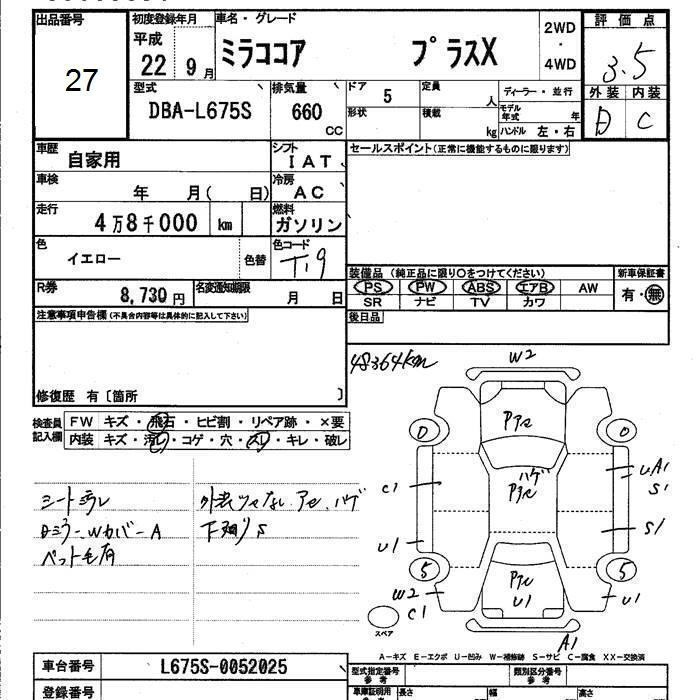 出品番号
27
初度登録年月
平成
22 9月
車名・グレード
ミラココア プラスX
2WD
・
4WD
評価点
3.5
外装 内装
D C
型式
DBA-L675S
排気量
660
CC
ドア 5
形状
定員 人
積載 kg
ディーラー・並行
モデル
年式 年
ハンドル 左・右
車歴
自家用
シフト
IAT
セールスポイント(正常に機能するものに限ります)
車検
年 月( 日)
冷房
AC
走行
4万8千000 km
燃料
ガソリン
色
イエロー
色替
色コード
T19
装備品(純正品に限り○をつけてください)
新車保証書
PS PW ABS エアB AW
有・無
SR ナビ TV カワ
R券
8,730円
名変通知期限
月 日
後日品
注意事項申告欄(不具合内容等は具体的に記入して下さい)
修復歴 有〔箇所 〕
48364km
検査員
記入欄
FW キズ・飛石・ヒビ割・リペア跡・×要
内装 キズ・汚レ・コゲ・穴・スレ・キレ・破レ
シートヨゴレ
Dミラー-Wカバー-A
ペット毛有
外装ツヤなし アセ、ハゲ
下廻りS
W2
Pアセ
ハゲ
Pアセ
Pアセ
U1
C1
U1
W2
C1
UA1
S1
S1
U1
A1
5
5
スペア
A-キズ E-エクボ U-凹み W-補修跡 S-サビ C-腐食 XX-交換済
車台番号
L675S-0052025
登録番号
型式指定番号
参考
類別区分番号
参考
車庫証明用
参考
長さ
幅
高さ